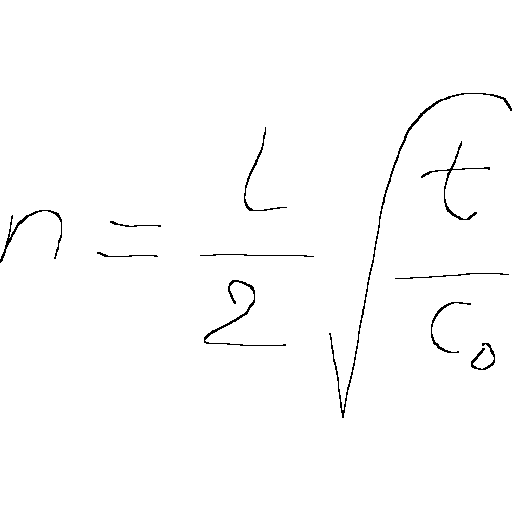 n = \frac{L}{2} \sqrt{\frac{t}{c_0}}